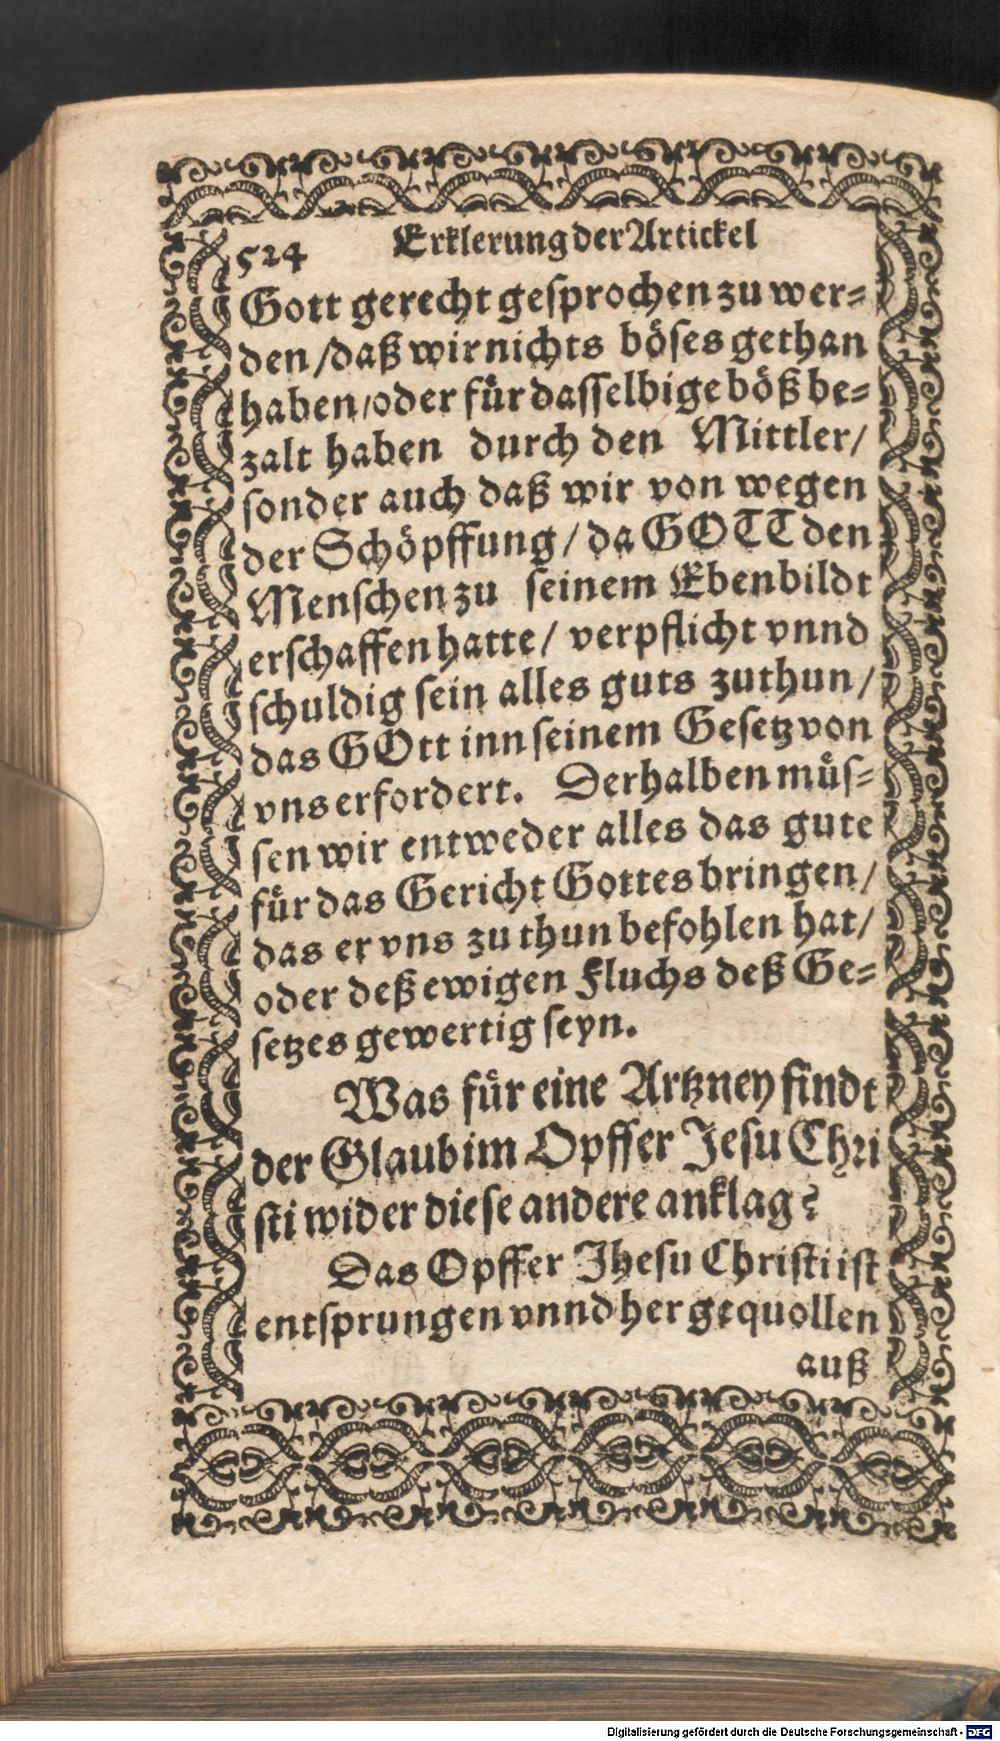 524 Erklerung der Artickel
Gott gerecht gesprochen zu wer=
den /daß wir nichts böses gethan
haben/oder für dasselbige böß be=
zalt haben durch den Mittler/
sonder auch daß wir von wegen
der Schöpffung / da GOTT den
Menschen zu seinem Ebenbildt
erschaffen hatte / verpflicht vnnd
schuldig sein alles guts zuthun /
das GOtt inn seinem Gesetz von
vns erfordert. Derhalben müs=
sen wir entweder alles das gute
für das Gericht Gottes bringen /
das er vns zu thun befohlen hat/
oder deß ewigen Fluchs deß Ge=
setzes gewertig seyn.
Was für eine Artzney findt
der Glaub im Opffer Jesu Chri
sti wider diese andere anklag?
Das Opffer Jhesu Christi ist
entsprungen vnnd her gequollen
auß
Digitalisierung gefördert durch die Deutsche Forschungsgemeinschaft - DFG